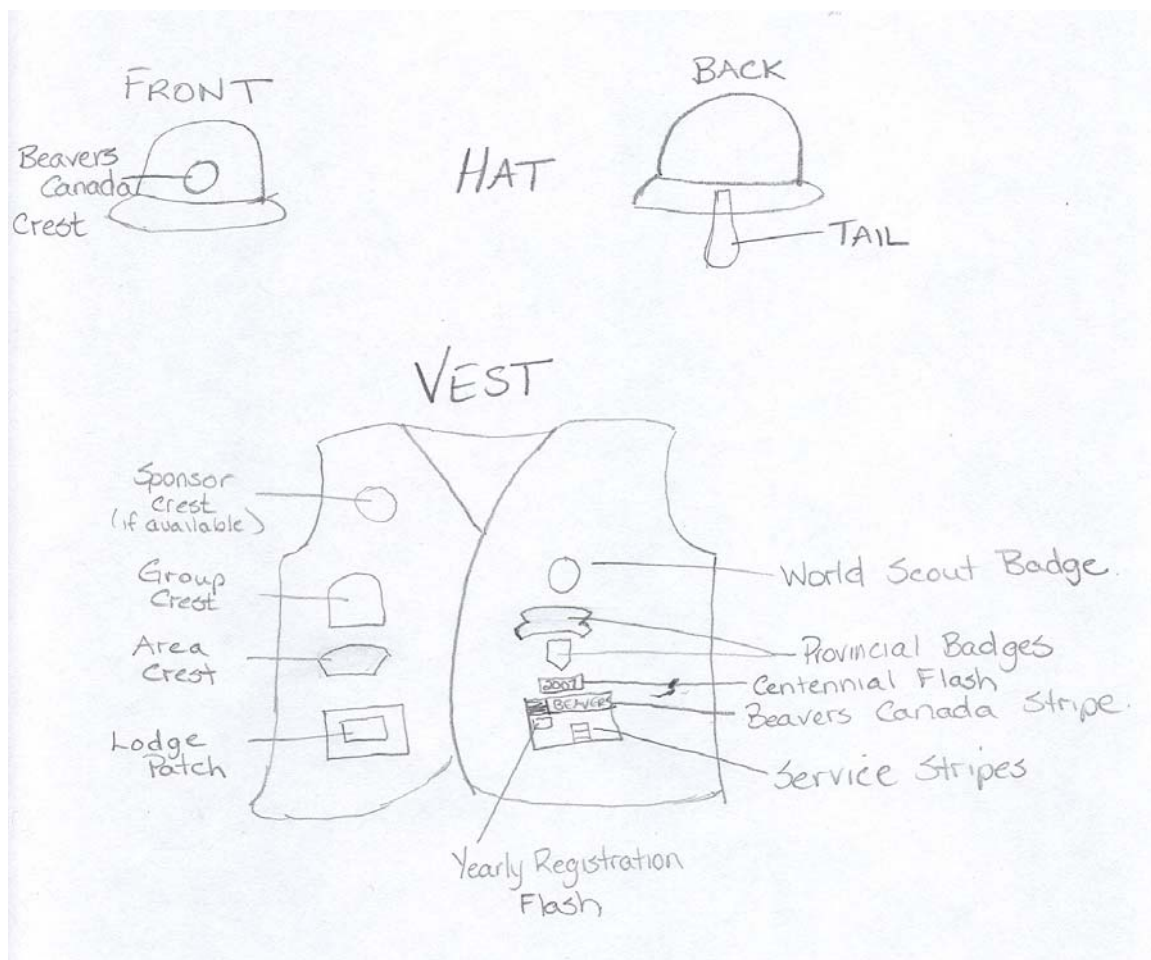 FRONT
BACK
Beavers
Canada
Crest
HAT
TAIL
VEST
Sponsor
Crest
(if available)
Group
Crest
Area
Crest
Lodge
Patch
World Scout Badge.
Provincial Badges
2007
Centennial Flash
BEAVERS
Beavers Canada Stripe.
Service Stripes
Yearly Registration
Flash